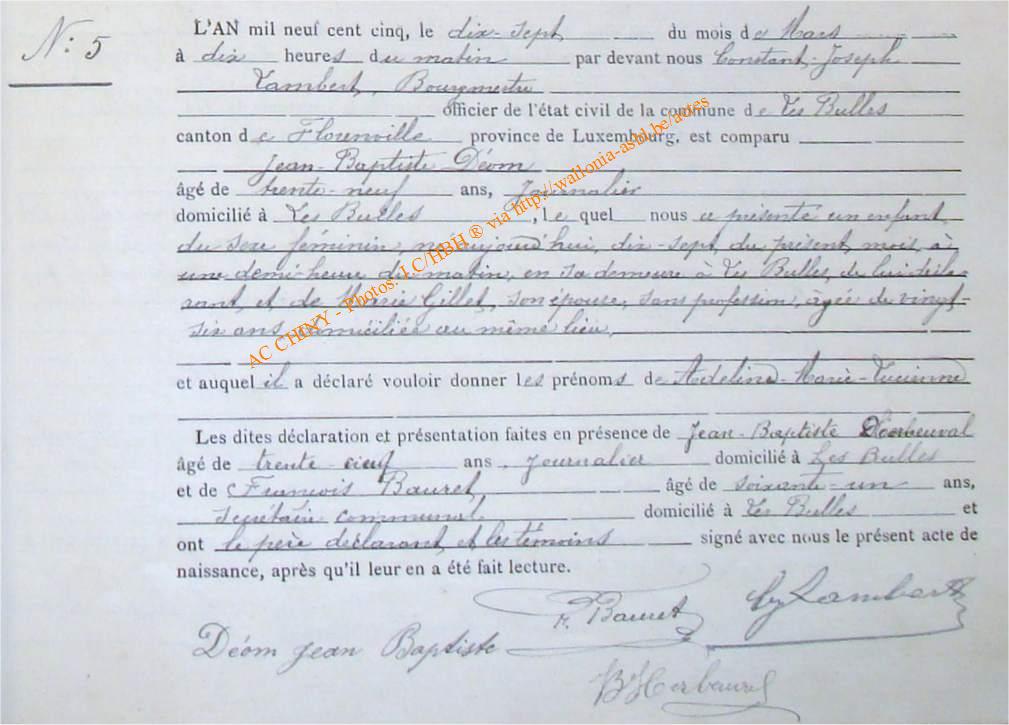 N: 5
L'AN mil neuf cent cinq, le dix-sept du mois de Mars
à dix heures du matin par devant nous Constant-Joseph
Lambert, Bourgmestre
officier de l'état civil de la commune de Les Bulles
canton de Florenville province de Luxembourg, est comparu
Jean-Baptiste Déom
âgé de trente-neuf ans, Journalier
domicilié à Les Bulles, le quel nous a présenté un enfant
du sexe féminin, né aujourd'hui, dix-sept du présent mois, à
une demi-heure du matin, en sa demeure à Les Bulles, de lui décla-
rant, et de Marie Gillet, son épouse, sans profession, âgée de vingt-
six ans, domiciliée au même lieu,
et auquel il a déclaré vouloir donner les prénoms de Adeline-Marie-Lucienne
Les dites déclaration et présentation faites en présence de Jean-Baptiste
âgé de trente neuf ans, Journalier domicilié à Les Bulles
et de François Bauret, âgé de soixante-un ans,
secrétaire communal, domicilié à Les Bulles et
ont le père déclarant, et les témoins signé avec nous le présent acte de
naissance, après qu'il leur en a été fait lecture.
F. Bauret Lambert
Déom Jean Baptiste
AC CHINY - Photos: LC/HBH ® via http://wallonia-asbl.be/actes